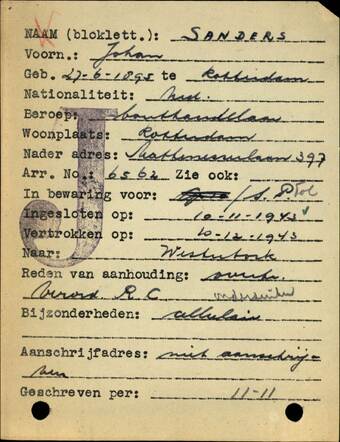 NAAM (bloklett.): SANDERS
Voorn.: Johan
Geb. 27-6-1895 te Rotterdam
Nationaliteit: Ned.
Beroep: bonthandelaar
Woonplaats: Rotterdam
Nader adres: 397
Arr. No.: 6562 Zie ook:
In bewaring voor: / S.D. Pol
Ingesloten op: 10-11-1943
Vertrokken op: 10-12-1943
Naar: Westerbork
Reden van aanhouding: overtr.
Verord. R.C. onderduiker
Bijzonderheden: cellulair
Aanschrijfadres: niet aanschrij-
ven
Geschreven per: 11-11
J